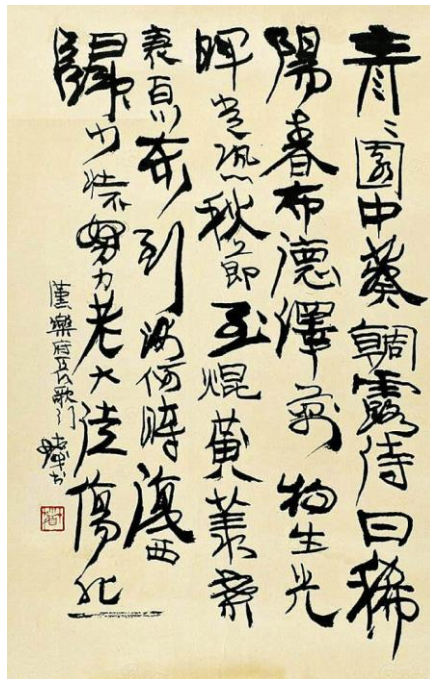 青〻園中葵朝露待日稀
陽春布德澤萬物生光
暉常恐秋節至焜黃華葉
衰百川東到海何時復西
歸少壯不努力老大徒傷悲
漢樂府長歌行